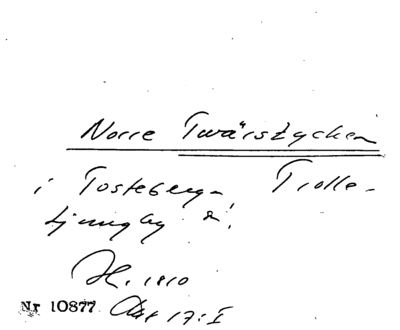 Norre Twärstycken
i Tosteberga, Trolle-
ljungby s:n
H. 1810
Nr 10877 Akt 17:I